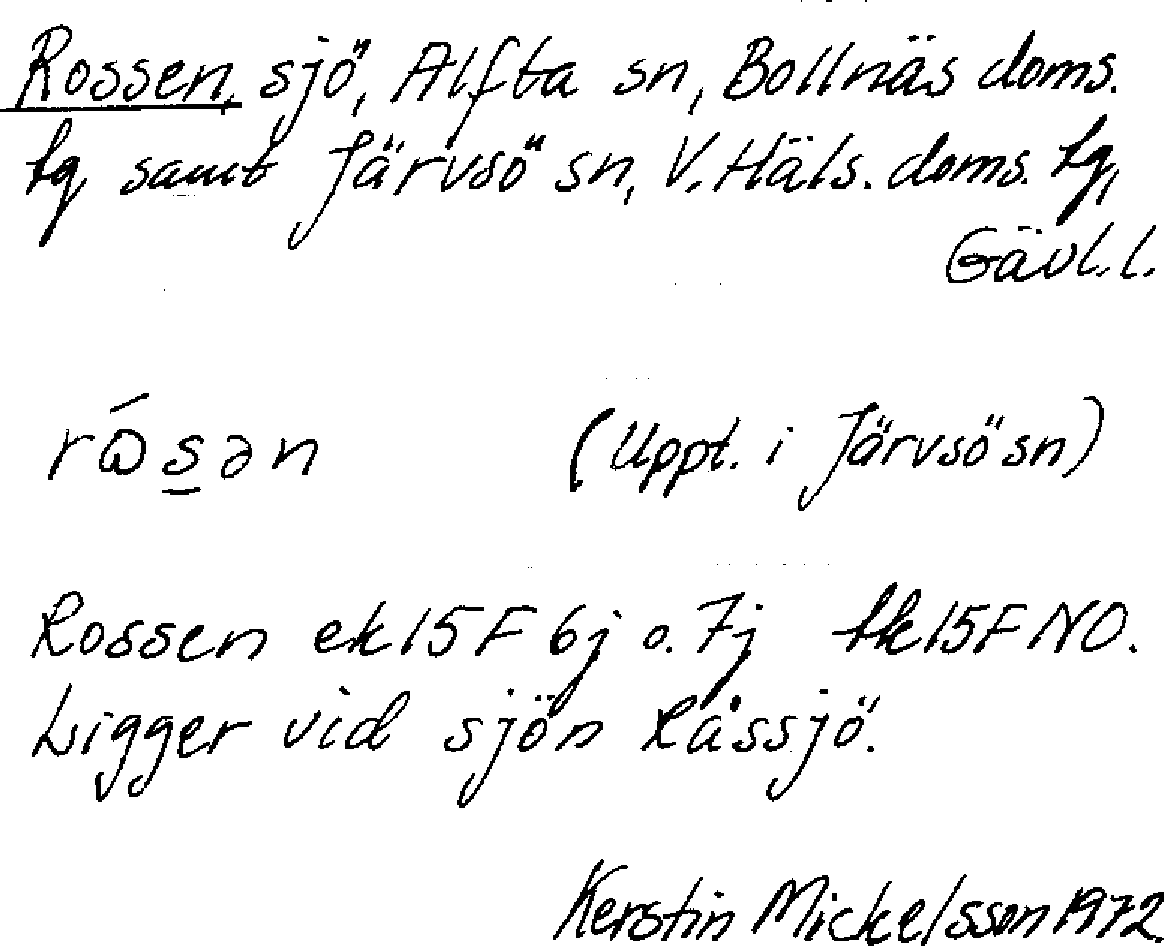 Rossen, sjö, Alfta sn, Bollnäs doms.
tg samt Järvsö sn, V. Häls. doms. tg,
Gävl. l.
rɷ́s̲ən (Uppt. i Järvsö sn)
Rossen ek 15F 6j o. 7j tk 15F NO.
Ligger vid sjön Råssjö.
Kerstin Mickelsson 1972